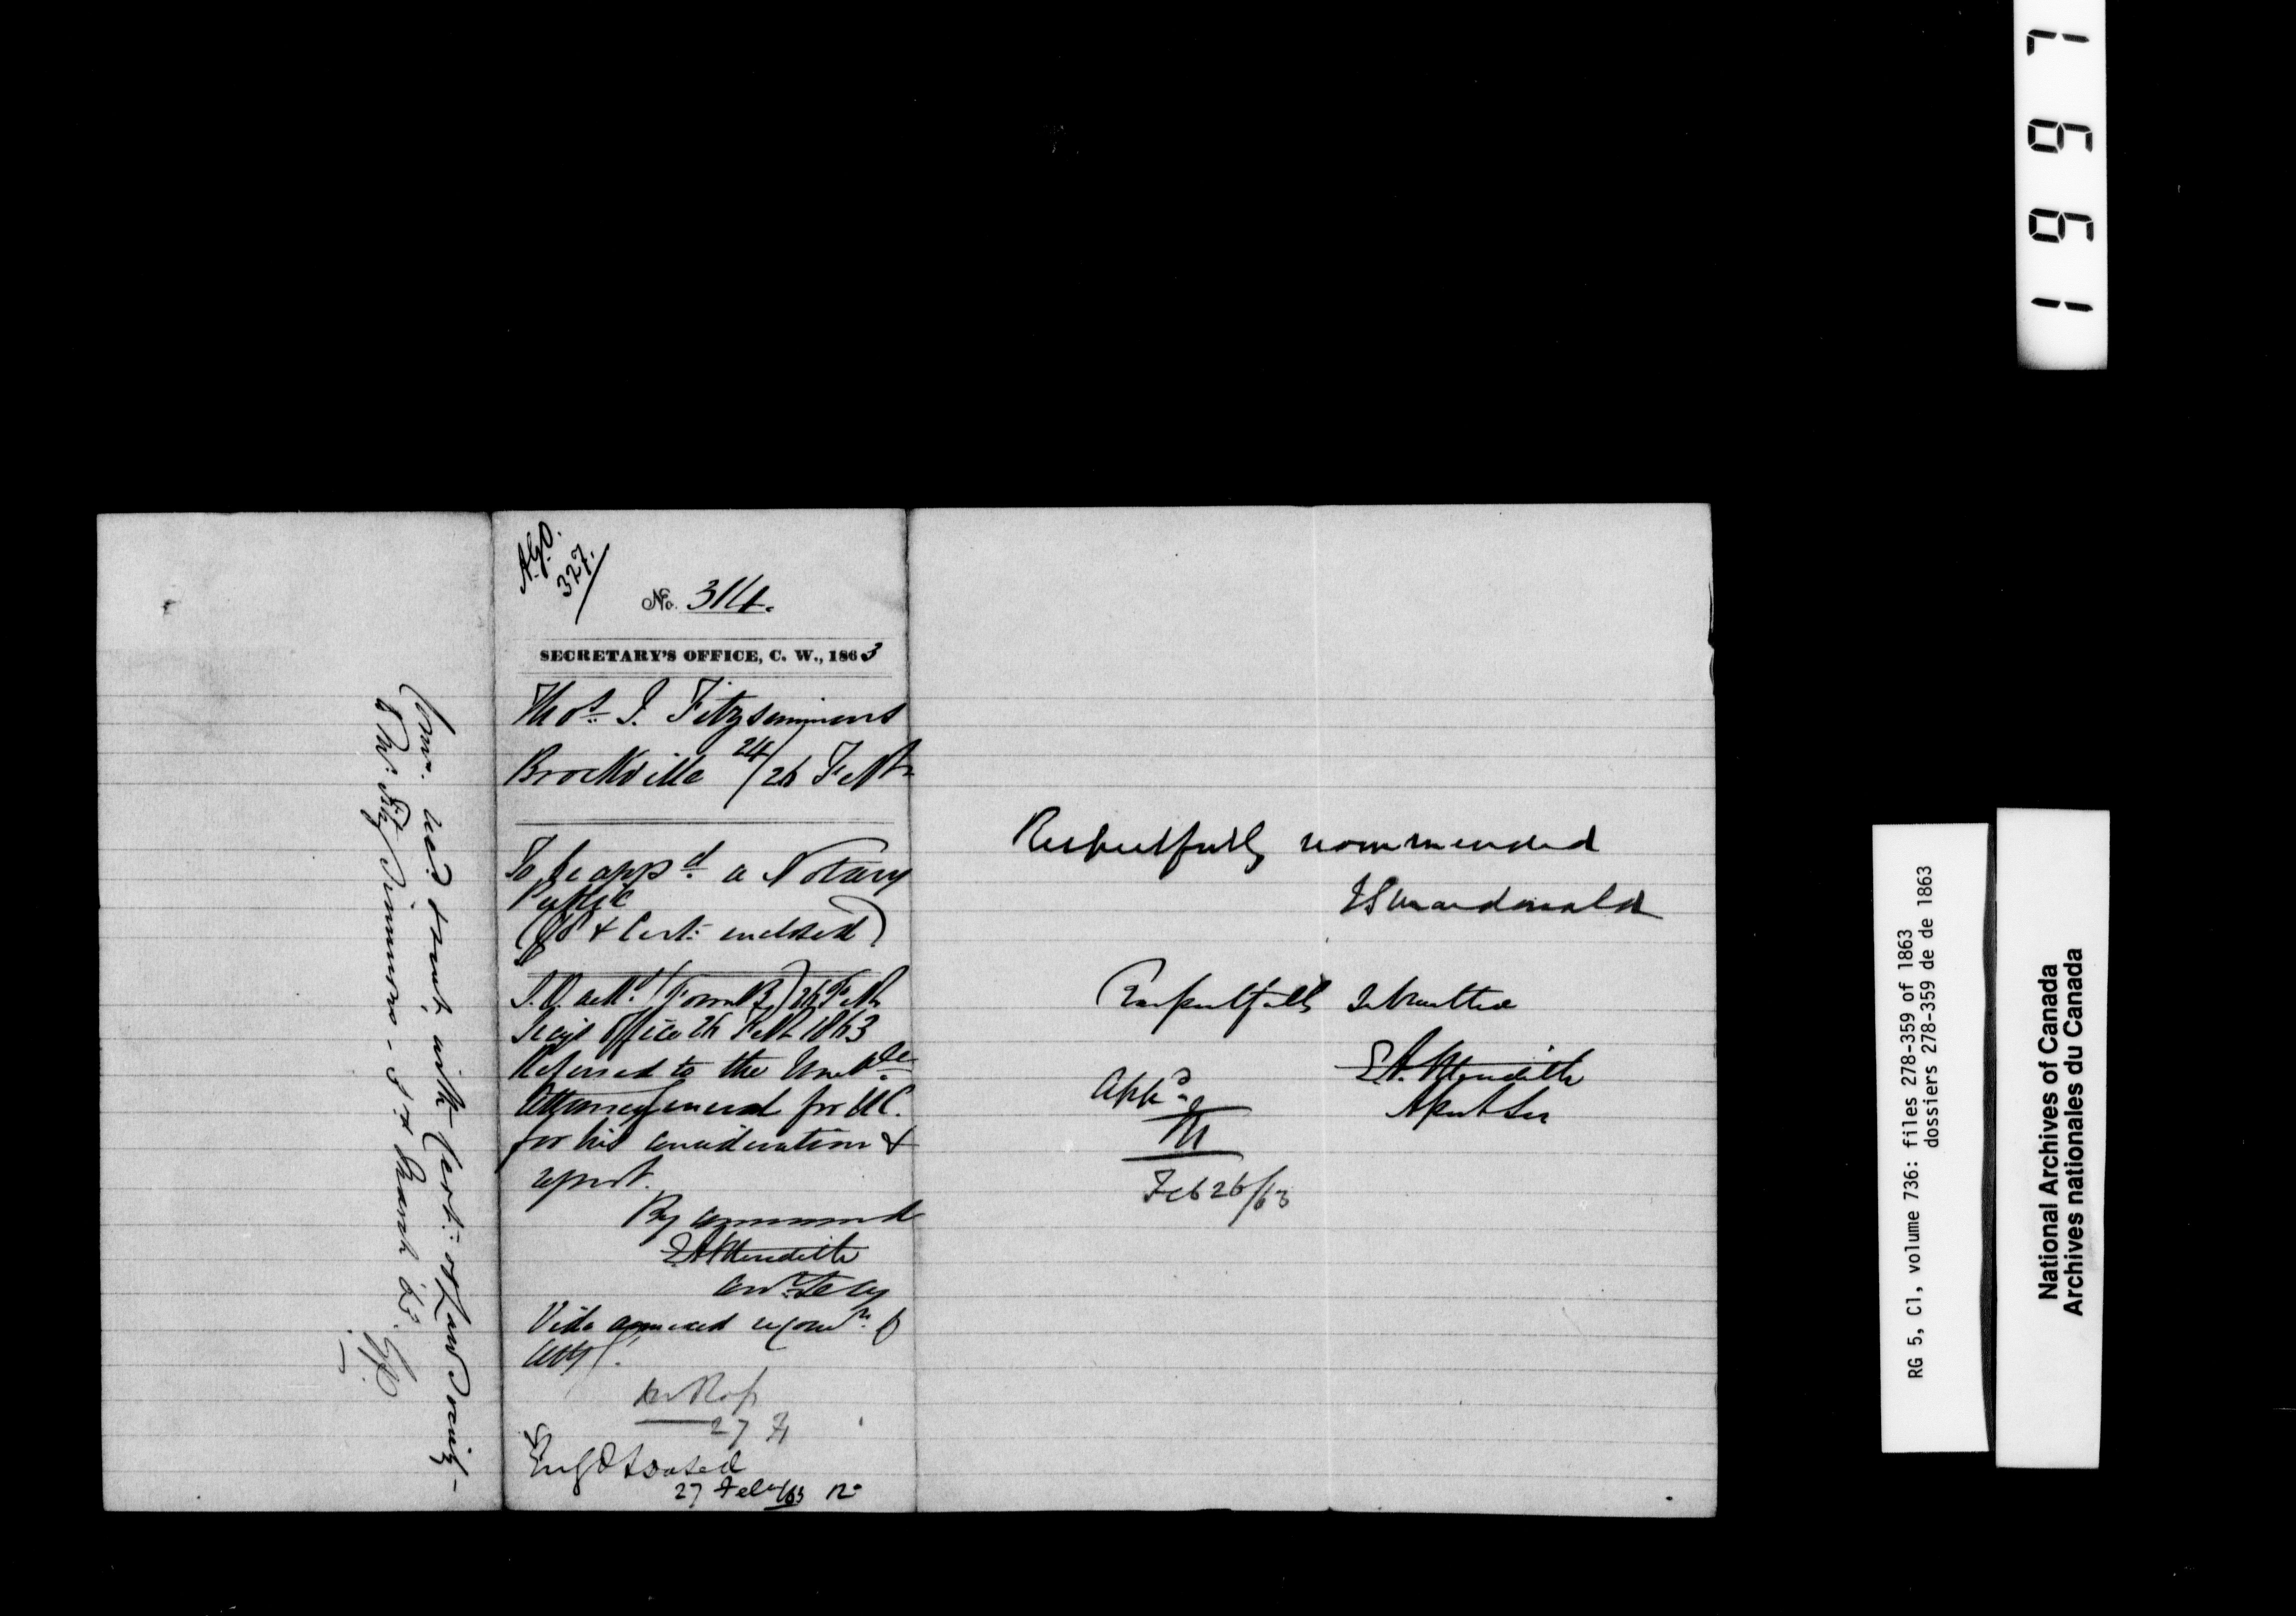 A.G.O.
327.
No. 314.
SECRETARY'S OFFICE, C. W., 1863
Thos. J. Fitzsimmons
Brockville 24/26 Feb
To be appd. a Notary
Public
( & Cert: enclosed)
(Form B) 26 Feb
Secy's Office 26 Feb 1863
Referred to the Honble
Attorney General for U.C.
for his consideration &
report.
By command
E A Meredith
Vide annexed recomn. of
27 F
Engrossed
27 Feby/63
Com: and sent with Cert: of
to Mr. Fitz Simmons - March 63.
Respectfully recommended
J S Macdonald
Respectfully Submitted
E. A. Meredith
Appd.
M
Feb 26/63
1997
RG 5, C1, volume 736: files 278-359 of 1863
dossiers 278-359 de de 1863
National Archives of Canada
Archives nationales du Canada